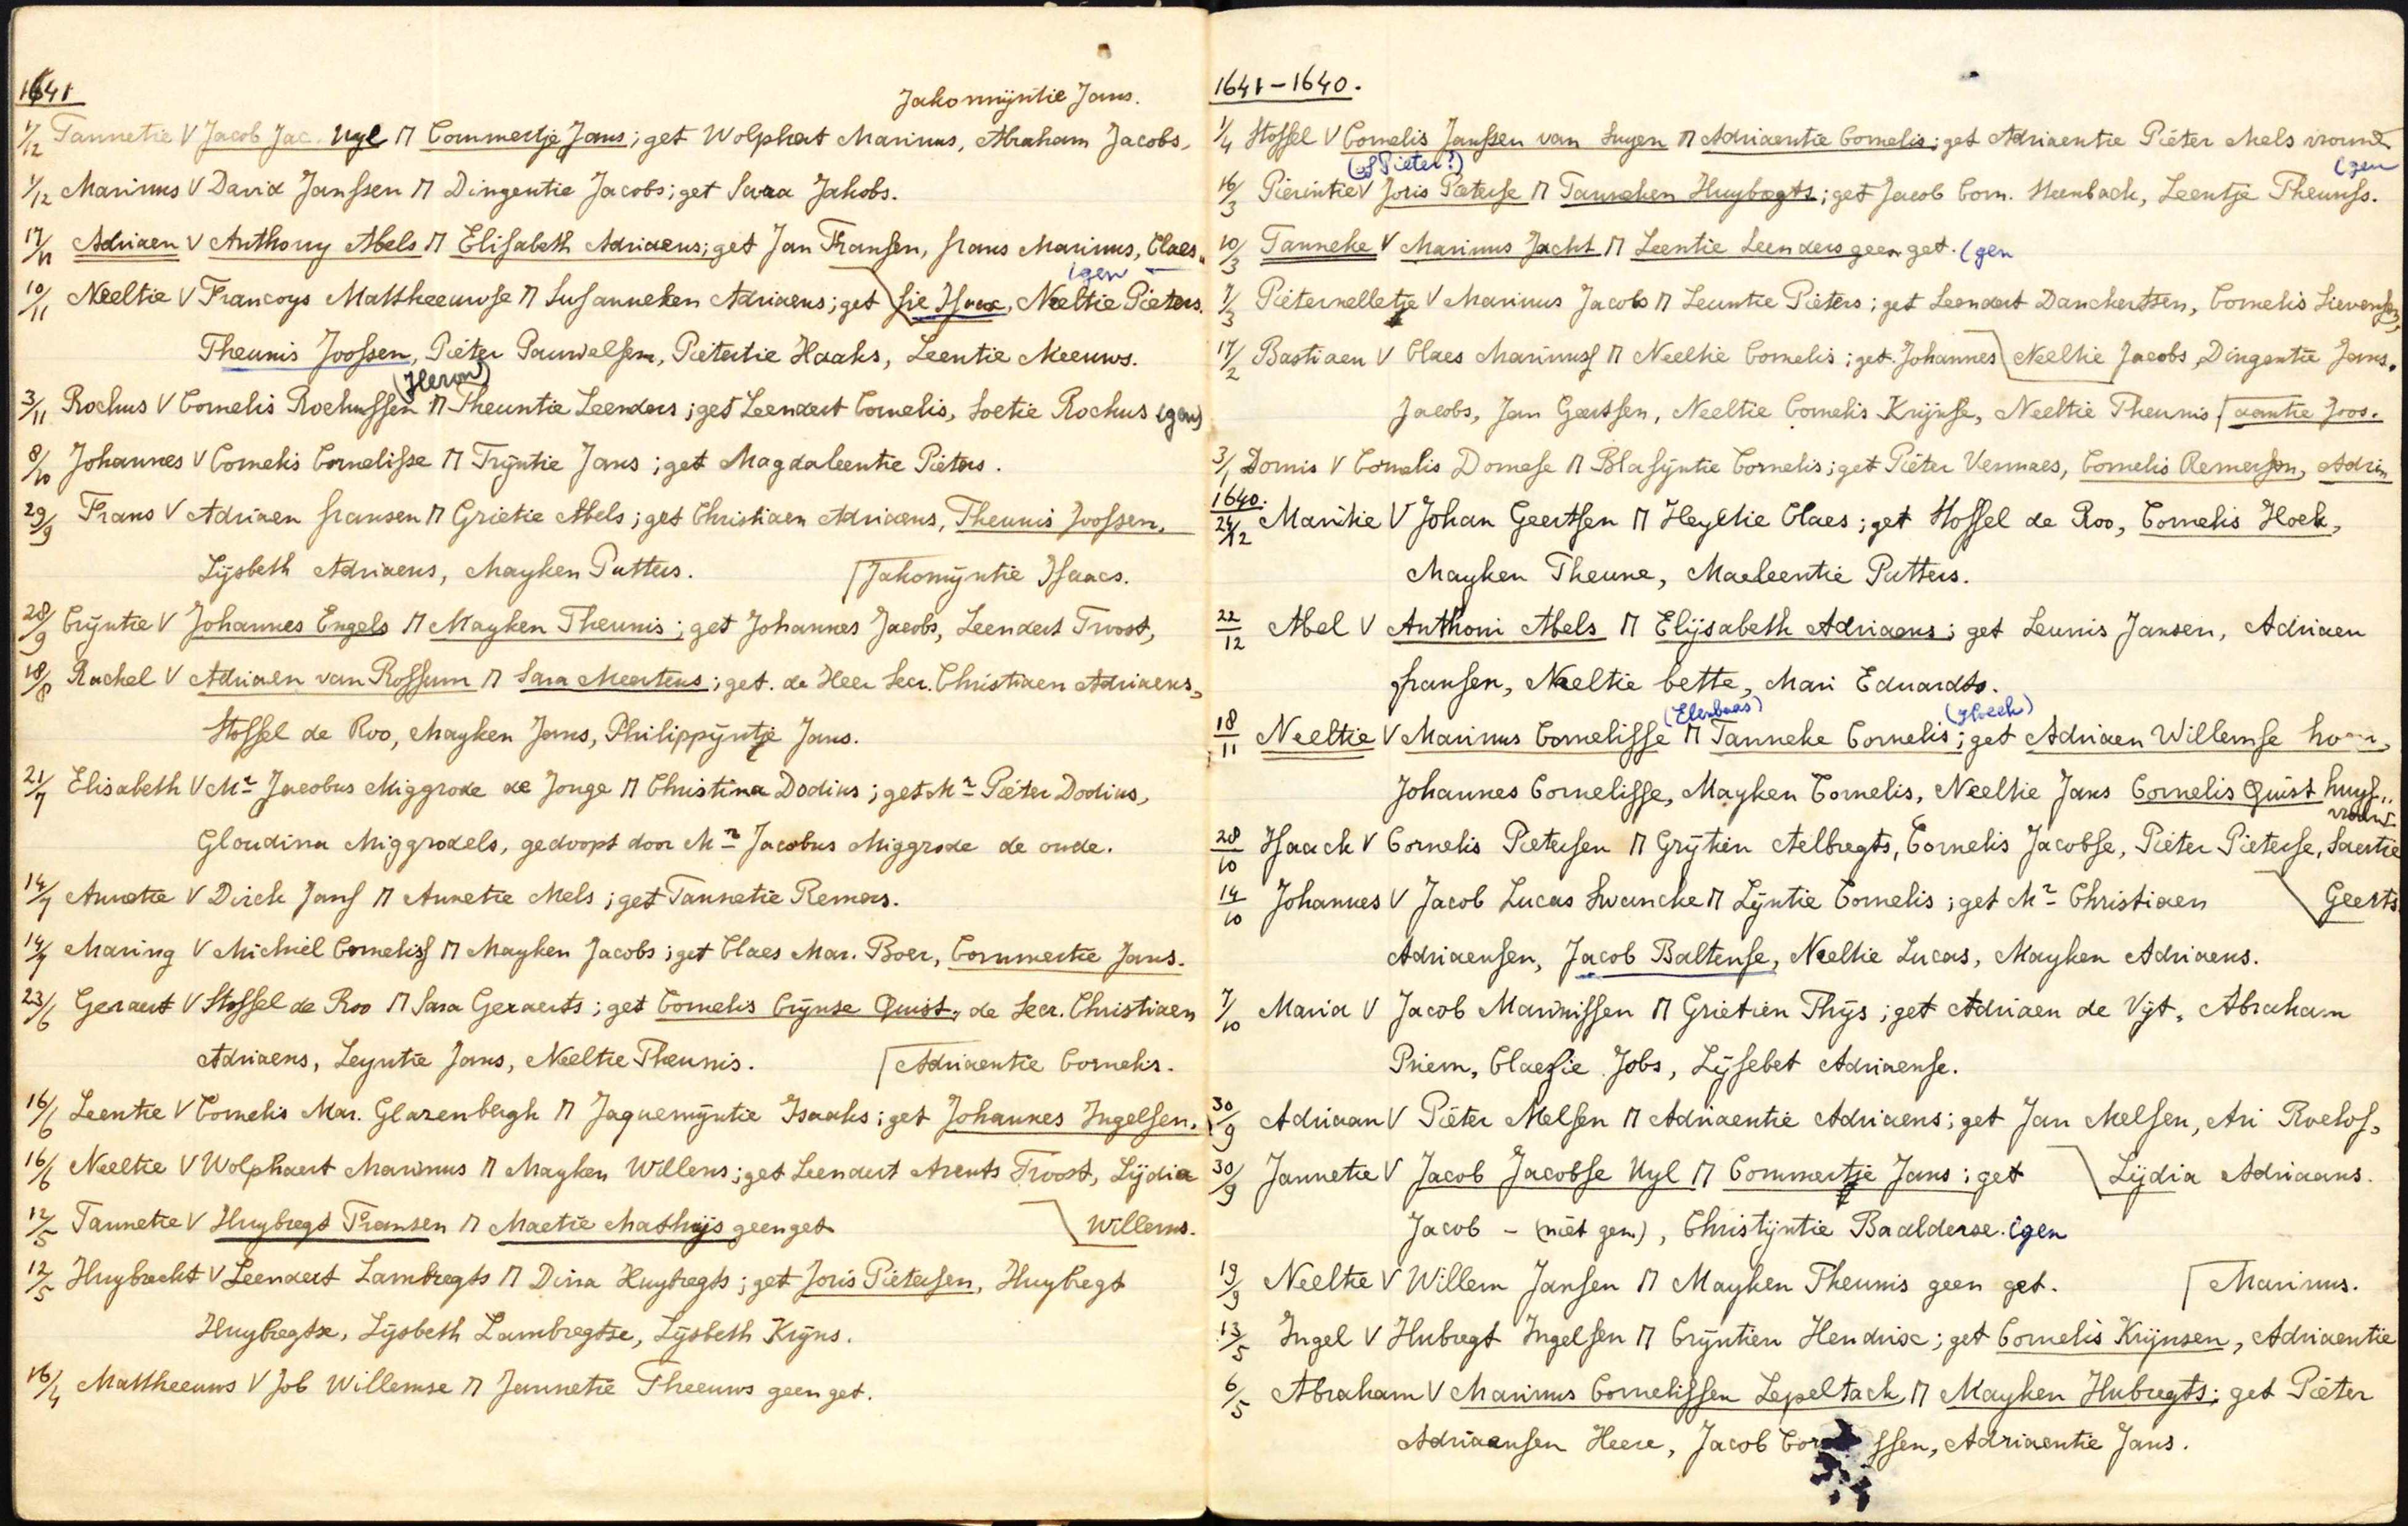 1641
Jakomijntie Jans.
1/12 Tannetie V Jacob Jac. Uyl M Commertje Jans; get Wolphert Marinus, Abraham Jacobs,
1/12 Marinus V David Janssen M Dingentie Jacobs; get Sara Jakobs.
17/11 Adriaen V Anthony Abels M Elisabeth Adriaens; get Jan Fransen, frans Marinus, Claes
(gen
10/11 Neeltie V Francoys Mattheeuwse M Susanneken Adriaens; get sie Isaac, Neeltie Pieters.
Theunis Joossen, Pieter Pauwelsem, Pietertie Haaks, Leentie Meeuws.
(Heron)
3/11 Rochus V Cornelis Rochussen M Theuntie Leenders; get Leendert Cornelis, Soetie Rochus (gen)
8/10 Johannes V Cornelis Cornelisse M Trijntie Jans; get Magdaleentie Pieters.
29/9 Frans V Adriaen fransen M Grietie Abels; get Christiaen Adriaens, Theunis Joossen,
Lijsbeth Adriaens, Mayken Putters. Jakomijntie Isaacs.
28/9 Crijntie V Johannes Engels M Mayken Theunis; get Johannes Jacobs, Leendert Troost,
18/8 Rachel V Adriaen van Rossum M Sara Meertens; get. de Heer Secr. Christiaen Adriaens,
Stoffel de Roo, Mayken Jans, Philippijntje Jans.
21/7 Elisabeth V Mr Jacobus Miggrode de Jonge M Christina Dodius; get Mr Pieter Dodius,
Gloudina Miggrodels, gedoopt door Mr Jacobus Miggrode de oude.
14/7 Annetie V Dirck Jans M Annetie Mels; get Tannetie Remers.
14/7 Maring V Michiel Corneliss M Mayken Jacobs; get Claes Mar. Boer, Commertie Jans.
23/6 Geraert V Stoffel de Roo M Sara Geraerts; get Cornelis Crijnse Quist, de Secr. Christiaen
Adriaens, Leyntie Jans, Neeltie Theunis. Adriaentie Cornelis.
16/6 Leentie V Cornelis Mar. Glazenbergh M Jaquemijntie Isaaks; get Johannes Ingelsen,
16/6 Neeltie V Wolphaert Marinus M Mayken Willems; get Leendert Arents Troost, Lijdia
12/5 Tannetie V Huybregt Fransen M Maetie Mathijs geen get Willems.
12/5 Huybrecht V Leendert Lambregts M Dina Huybregts; get Joris Pietersen, Huybregt
Huybregtse, Lijsbeth Lambregtse, Lijsbeth Krijns.
16/4 Mattheeuws V Job Willemse M Jannetie Theeuws geen get.
1641-1640.
1/4 Stoffel V Cornelis Janssen van Suyen M Adriaentie Cornelis; get Adriaentie Pieter Mels vrouw
(of Pieter?) (gen
16/3 Pierintie V Joris Pieterse M Tanneken Huybregts; get Jacob Corn. Steenback, Leentje Theuniss.
10/3 Tanneke V Marinus Jacht M Leentie Leenders geen get. (gen
7/3 Pieternelletje V Marinus Jacobs M Leuntie Pieters; get Leendert Danckertsen, Cornelis Lievense,
17/2 Bastiaen V Claes Marinuss M Neeltie Cornelis; get. Johannes Neeltie Jacobs, Dingentie Jans.
Jacobs, Jan Geertsen, Neeltie Cornelis Krijnse, Neeltie Theunis aentie Joos.
3/1 Dornis V Cornelis Domese M Blasijntie Cornelis; get Pieter Vermaes, Cornelis Remersen, Adri
1640.
24/12 Maritie V Johan Geertsen M Heyltie Claes; get Stoffel de Roo, Cornelis Hoek,
Mayken Theune, Maeleentie Putters.
22/12 Abel V Anthoni Abels M Elijsabeth Adriaens; get Leunis Jansen, Adriaen
fransen, Neeltie bette, Mari Eduardts.
(Elenbaas) (Hoeck)
18/11 Neeltie V Marinus Cornelisse M Tanneke Cornelis; get Adriaen Willemse
Johannes Cornelisse, Mayken Cornelis, Neeltie Jans Cornelis Quist huys..
vrouw.
28/10 Isaack V Cornelis Pietersen M Grijtien Aelbregts, Cornelis Jacobse, Pieter Pieterse, Saertie
14/10 Johannes V Jacob Lucas Swancke M Lijntie Cornelis; get Mr Christiaen Geerts
Adriaensen, Jacob Baltense, Neeltie Lucas, Mayken Adriaens.
7/10 Maria V Jacob Marinissen M Grietien Thijs; get Adriaen de Vijt, Abraham
Priem, Claesie Jobs, Lijsebet Adriaense.
30/9 Adriaan V Pieter Melsen M Adriaentie Adriaens; get Jan Melsen, Ari Roelofs,
30/9 Jannetie V Jacob Jacobse Uyl M Commertje Jans; get Lijdia Adriaans.
Jacob - (niet gen), Christijntie Baalderse. (gen
19/9 Neeltie V Willem Jansen M Mayken Theunis geen get. Marinus.
13/5 Ingel V Hubregt Ingelsen M Crijntien Hendrisc; get Cornelis Krijnsen, Adriaentie
6/5 Abraham V Marinus Cornelissen Lepeltack M Mayken Hubregts; get Pieter
Adriaensen Heere, Jacob Cor ssen, Adriaentie Jans.